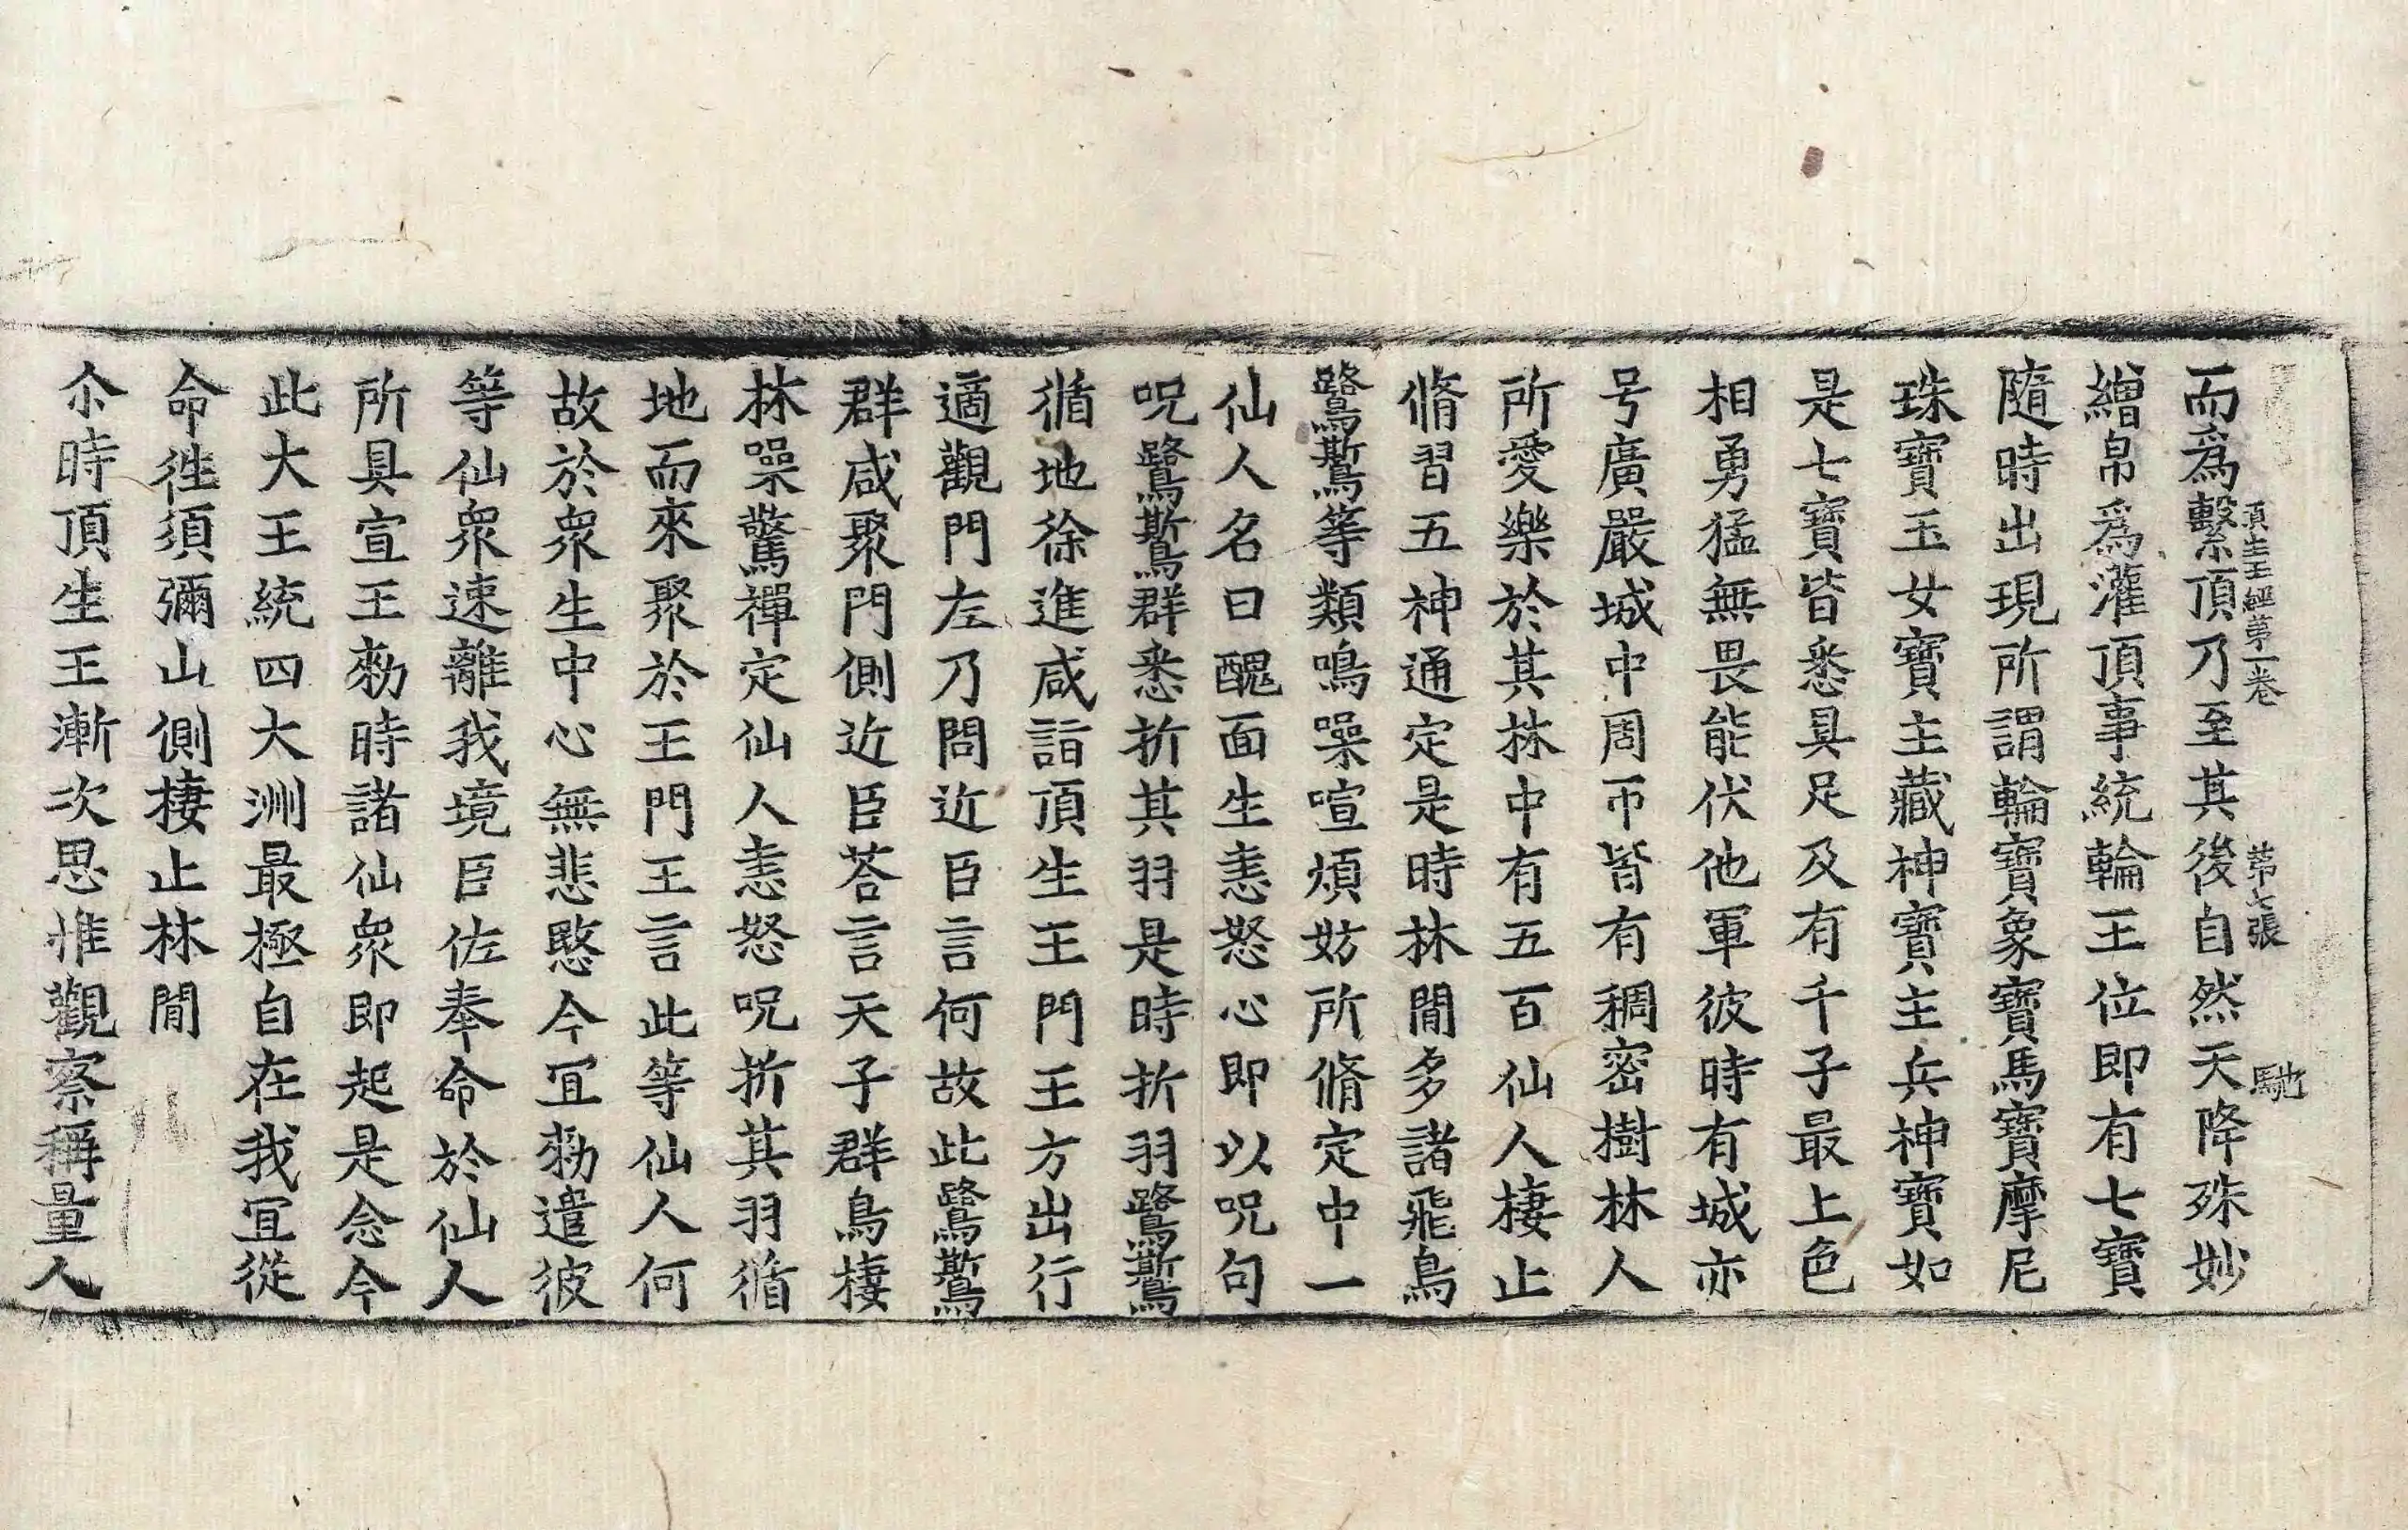 頂生王經第一卷 第七張 馳
而爲繫頂乃至其後自然天降殊妙
繒帛爲灌頂事統輪王位即有七寶
隨時出現所謂輪寶象寶馬寶摩尼
珠寶玉女寶主藏神寶主兵神寶如
是七寶皆悉具足及有千子最上色
相勇猛無畏能伏他軍彼時有城亦
号廣嚴城中周帀皆有稠密樹林人
所愛樂於其林中有五百仙人棲止
脩習五神通定是時林閒多諸飛鳥
鷺鷥等類鳴噪喧煩妨所脩定中一
仙人名曰醜面生恚怒心即以呪句
呪鷺鷥群悉折其羽是時折羽鷺鷥
循地徐進咸詣頂生王門王方出行
適觀門左乃問近臣言何故此鷺鷥
群咸聚門側近臣荅言天子群鳥棲
林噪驚禪定仙人恚怒呪折其羽循
地而來聚於王門王言此等仙人何
故於衆生中心無悲愍今冝勑遣彼
等仙衆速離我境臣佐奉命於仙人
所具宣王勑時諸仙衆即起是念今
此大王統四大洲最極自在我冝從
命徃須彌山側棲止林閒
尒時頂生王漸次思惟觀察稱量人